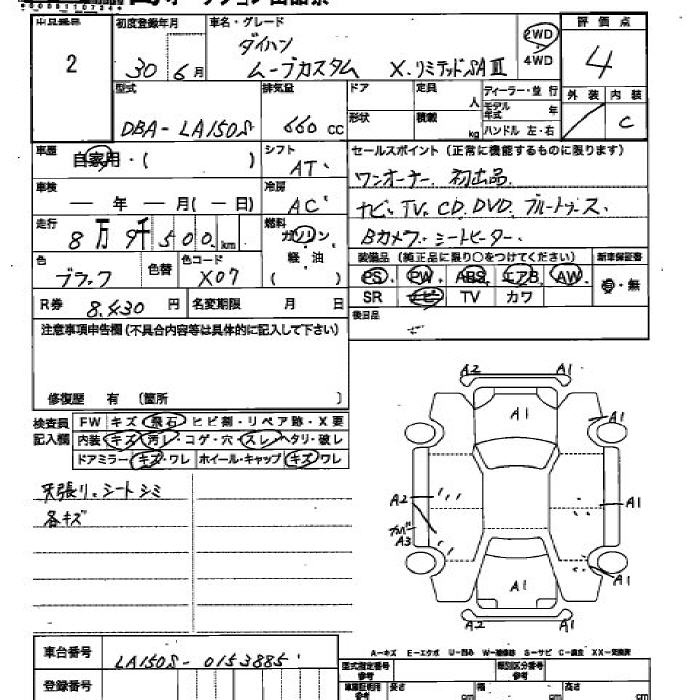 2
初度登録年月
30 6月
車名・グレード
ダイハツ
ムーブカスタム X.リミテッドSAⅢ
2WD
4WD
評価点
4
外装 内装
C
型式
DBA-LA150S
排気量
660 cc
ドア
形状
定員
人
積載
kg
ディーラー・並行
モデル年式 年
ハンドル 左・右
車歴
自家用・( )
シフト
AT
車検
― 年 ― 月(― 日)
冷房
AC
走行
8万9千500km
燃料
ガソリン
軽・油
( )
色
ブラック
色替
色コード
X07
R券 8,430 円
名変期限 月 日
セールスポイント(正常に機能するものに限ります)
ワンオーナー、初出品、
ナビ、TV、CD、DVD、ブルートゥース、
Bカメラ、シートヒーター、
装備品(純正品に限り○をつけてください)
新車保証書
PS PW ABS エアB AW
有・無
SR ナビ TV カワ
後日品
注意事項申告欄(不具合内容等は具体的に記入して下さい)
修復歴 有 (箇所 )
検査員記入欄
FW キズ・飛石・ヒビ割・リペア跡・X要
内装 キズ・汚レ・コゲ・穴・スレ・ヘタリ・破レ
ドアミラー キズ・ワレ ホイール・キャップ キズ・ワレ
天張り、シートシミ
各キズ
A2 A1
A1
A1
A2
A1
カバー
A3
A1
A1
A2 A1
車台番号
LA150S-0153885
登録番号
A-キズ E-エクボ U-凹み W-補修跡 S-サビ C-腐食 XX-交換済
型式指定番号
類別区分番号
長さ cm 幅 cm 高さ cm